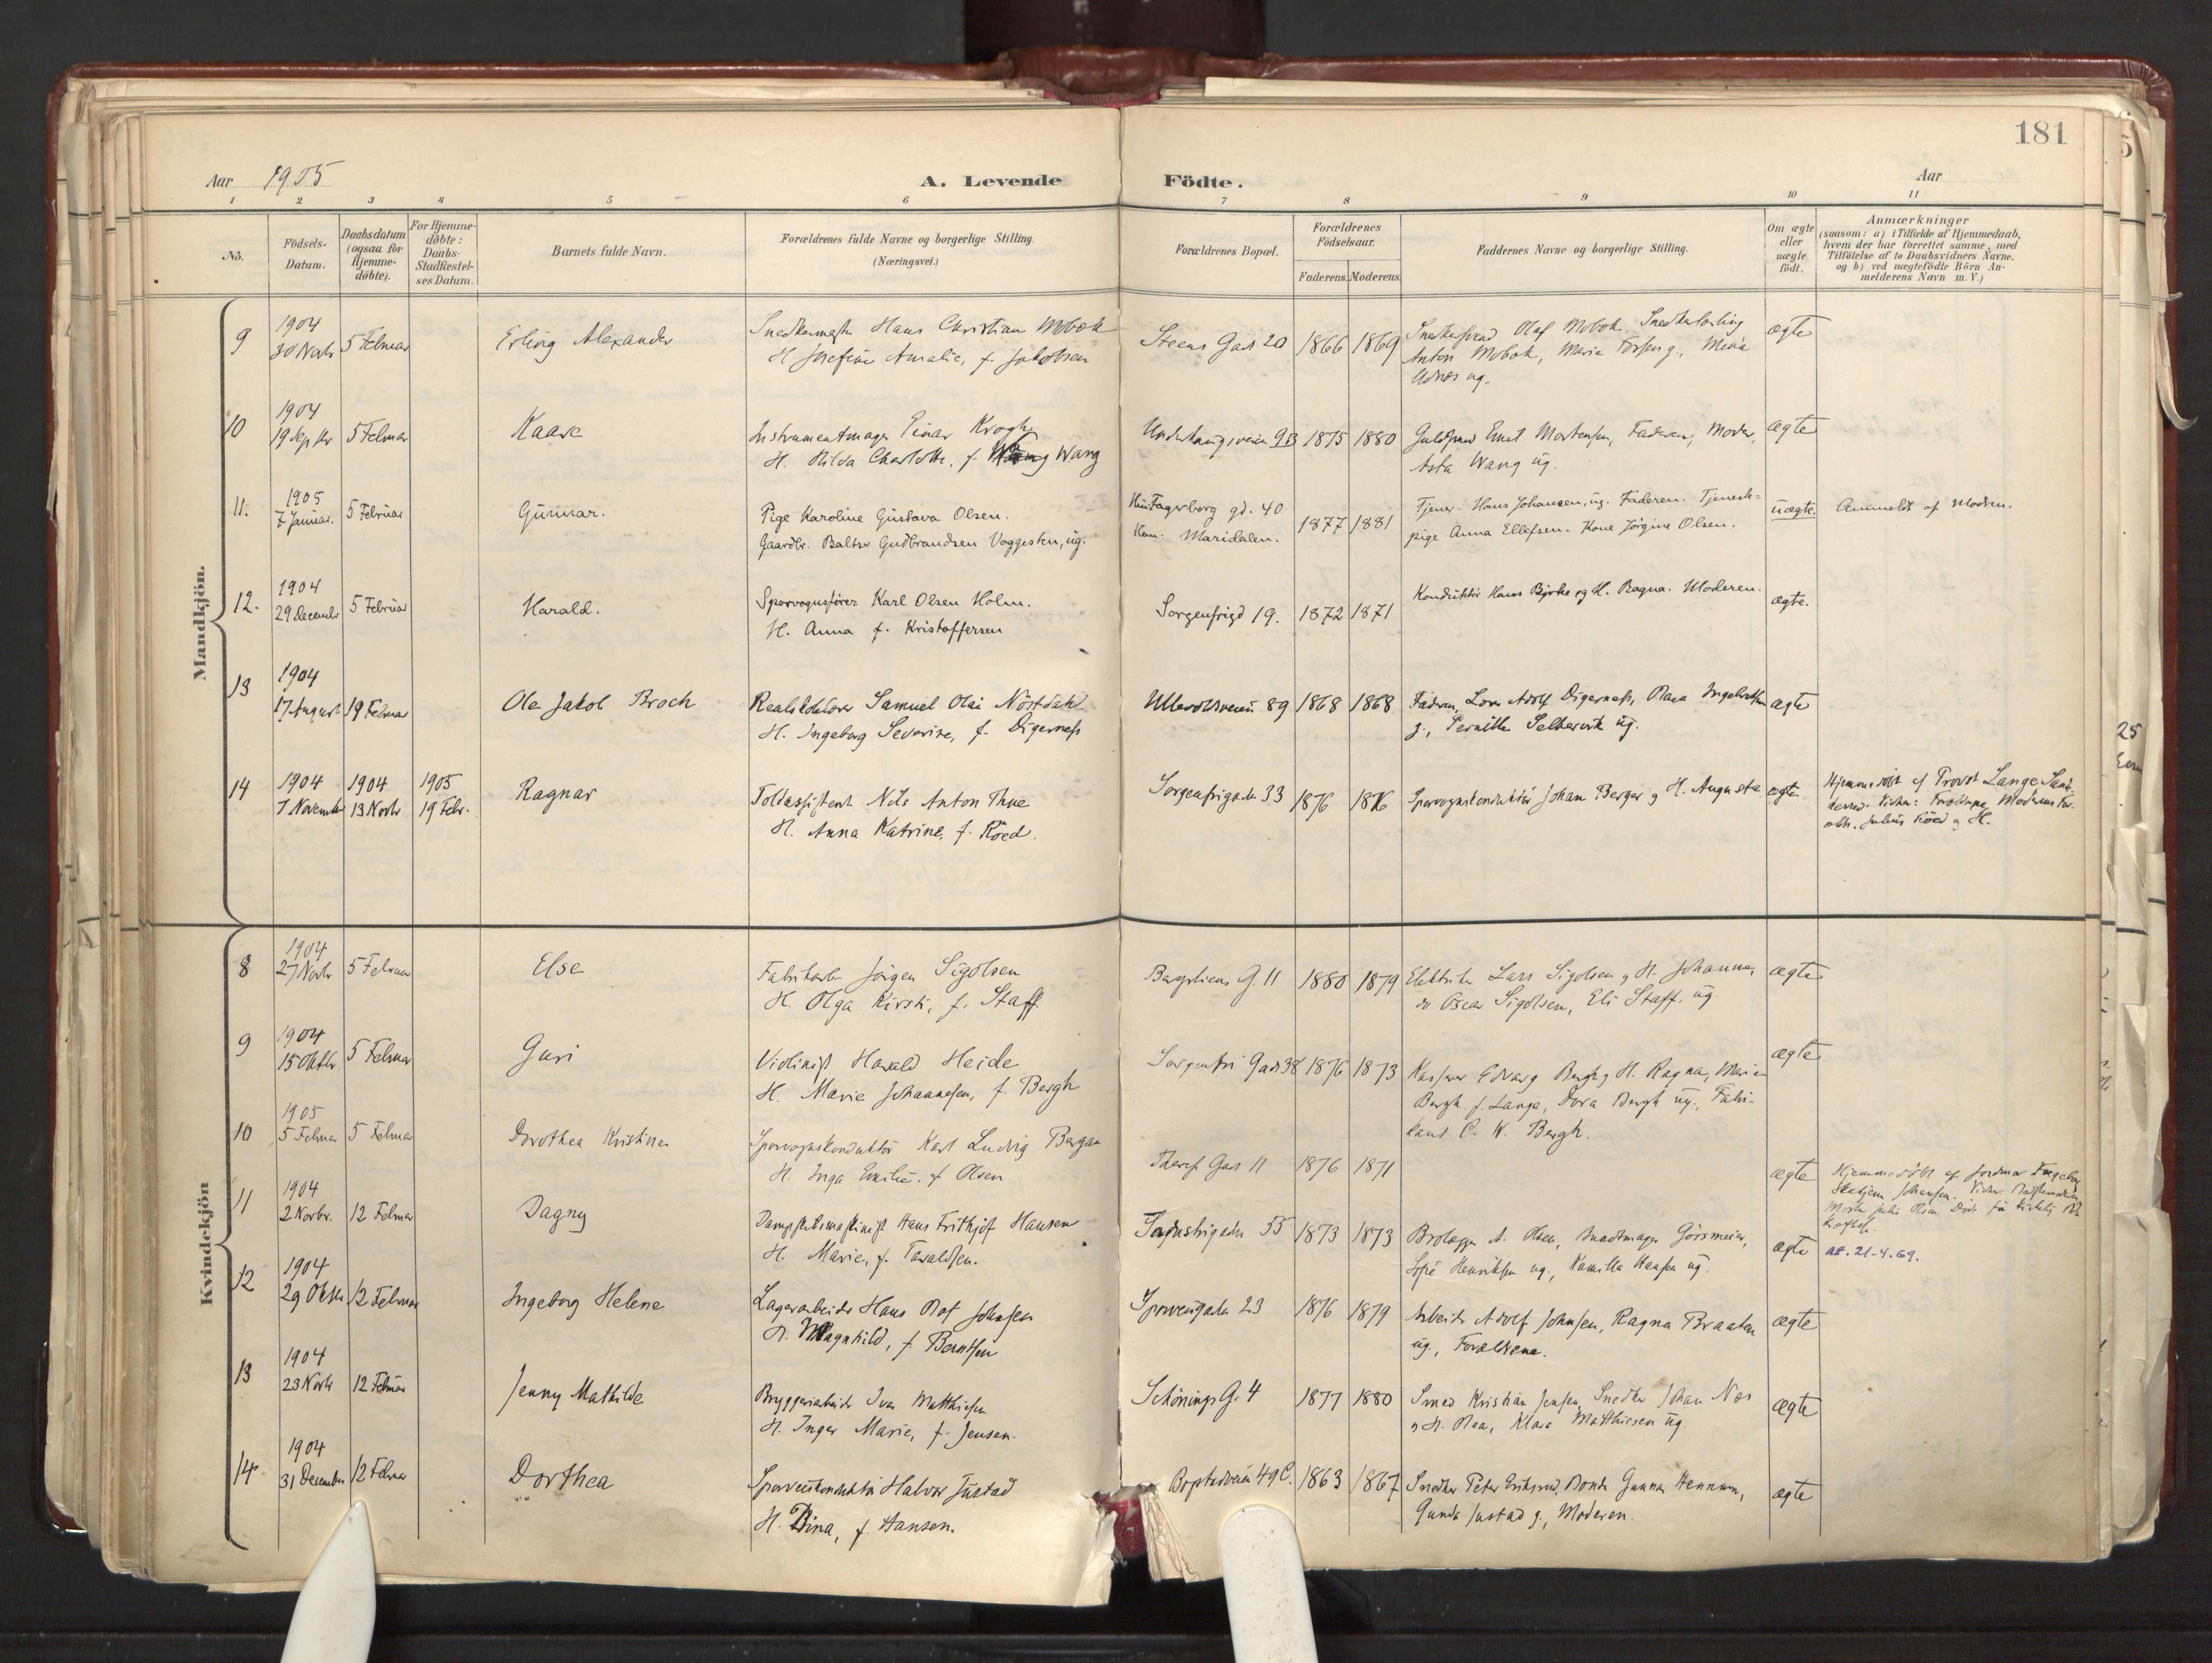 181
Aar 1905
A. Levende Födte.
Aar
1 2 3 4 5 6 7 8 9 10 11
No.
Födsels-
Datum.
Daabsdatum
(ogsaa for
Hjemme-
döbte).
For Hjemme-
döbte:
Daabs-
Stadfæstel-
ses Datum.
Barnets fulde Navn.
Forældrenes fulde Navne og borgerlige Stilling.
(Næringsvei.)
Forældrenes Bopæl.
Forældrenes
Födselsaar.
Faderens. Moderens.
Faddernes Navne og borgerlige Stilling.
Om ægte
eller
uægte
födt.
Anmærkninger
(saasom: a) i Tilfælde af Hjemmedaab,
hvem der har forrettet samme, med
Tilföielse af to Daabsvidners Navne.
og b) ved uægtefödte Börn An-
melderens Navn m. V.)
Mandkjön.
9 1904
30 Novbr 5 Februar Erling Alexander
Snedkermester Hans Christian Mobæk
H. Josefine Amalie, f. Jakobsen
Steens Gade 20 1866 1869
Olaf Mobæk,
Anton Mobæk, Marie
ug.
ægte
10 1904
19 Septbr 5 Februar Kaare
Instrumentmager Einar Krogh
H. Hilda Charlotte, f. Wang
9B 1875 1880
Emil Mortensen, Faderen, Moder,
Asta Wang ug.
ægte
11. 1905
7 Januar. 5 Februar Gunnar.
Pige Karoline Gustava Olsen.
Gaardbr. Baltser Gudbrandsen Voggesten, ug.
Hun: Fagerborg gd. 40
Han: Maridalen.
1877 1881
Tjener Hans Johansen, ug. Faderen. Tjeneste-
pige Anna Ellefsen. Kone Jörgine Olsen.
uægte.
Anmeldt af Moderen.
12. 1904
29 December 5 Februar Harald.
Sporvognsfører Karl Olsen Holm.
H. Anna f. Kristoffersen
Sorgenfrigd 19. 1872 1871
Konduktör Hans Bjerke og H. Ragna. Moderen.
ægte.
13 1904
17 August 19 Februar Ole Jakob Broch
Samuel Olai Nöstdahl
H. Ingeborg Severine, f. Digernes
Ullevoldsveien 89 1868 1868
Faderen, Adolf Digernes,
g., Pernille Selkervik ug.
ægte
14 1904 1904 1905
7 November 13 Novbr 19 Febr. Ragnar
Toldassistent Nils Anton Thue
H. Anna Katrine, f. Röed.
Sorgenfrigaden 33 1876 1876
Sporvognskonduktör Johan Berger og H. Augusta
ægte
Hjemmedöbt af Provst Lange
Forældrene, Moderens For-
ældr. Julius Röed og H.
Kvindekjön
8 1904
27 Novbr 5 Februar Else
Fabrikarb. Jörgen Sigolsen
H. Olga Kirsti, f. Staff
G. 11 1880 1879
Elektriker Lars Sigolsen og H. Johanna,
do Oscar Sigolsen, Eli Staff. ug.
ægte
9 1904
15 Oktbr. 5 Februar Guri
Violinist Harald Heide
H. Marie Johannesen, f. Bergh
Sorgenfri Gade 38 1876 1873
Kasserer Edvard Bergh og H. Ragna, Marie
Bergh f. Lange, Dora Bergh ug., Fabri-
kant C. W. Bergh.
ægte
10 1905
5 Februar 5 Februar Dorothea Kristine
Sporvognskonduktör Karl Ludvig Bergan
H. Inga Emilie. f. Olsen
Theres Gad 11 1876 1871
ægte
Hjemmedöbt af Jordmor Ingeborg
Johansen.
11 1904
2 Novbr. 12 Februar Dagny
Dampskibsmaskinist Hans Frithjof Hansen
H. Marie, f. Taraldsen.
Industrigaden 55 1873 1873
Brolægger A. Olsen, Buntmager
Henriksen ug., Kamilla Hansen ug.
ægte
at. 21-4.69.
12 1904
29 Oktbr 12 Februar Ingeborg Helene
Lagerarbeider Hans Olaf Johnsen
H. Magnhild, f. Berntsen
Sporveisgaden 23 1876 1879
Arbeider Adolf Johnsen, Ragna Braaten
ug., Forældrene.
ægte
13 1904
23 Novbr 12 Februar Jenny Mathilde
Bryggeriarbeider Ivar Matthiesen
H. Inger Marie, f. Jensen.
Schönings G. 4 1877 1880
Smed Kristian Jensen, Snedker Johan Næs
og H. Olea, Klara Matthiesen ug.
ægte
14 1904
31 December 12 Februar Dorthea
Sporveiskonduktör Halvor Justad
H. Dina, f. Hansen.
Bogstadveien 49 C. 1863 1867
Snedker Peter Eriksrud, Bonde Gunnar Hennum,
Gunda Justad g., Moderen.
ægte
25